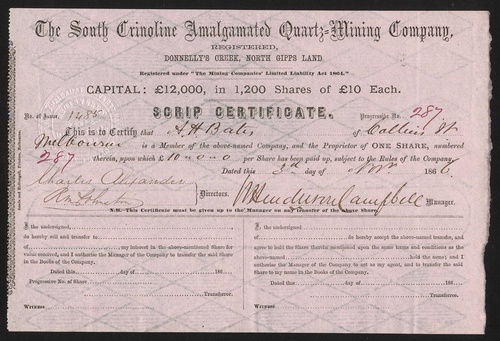 The South Crinoline Amalgamated Quartz-Mining Company,
REGISTERED,
DONNELLY'S CREEK, NORTH GIPPS LAND.
Registered under "The Mining Companies' Limited Liability Act 1864."
CAPITAL: £12,000, in 1,200 Shares of £10 Each.
SCRIP CERTIFICATE.
No. of Shares 1485 Progressive No. 287
This is to Certify that A H Bates of Collins St
Melbourne is a Member of the above-named Company, and the Proprietor of ONE SHARE, numbered
287 therein, upon which £10-0-0 per Share has been paid up, subject to the Rules of the Company.
Dated this day of 186
Charles Alexander
Directors. W Henderson Campbell Manager.
N.B. This Certificate must be given up to the Manager on any Transfer of the above Share.
I the undersigned,
do hereby sell and transfer to
of my interest in the above-mentioned Share for
value received, and I authorise the Manager of the Company to transfer the said Share
in the Books of the Company.
Dated this day of 186
Progressive No. of Share
Transferror.
Witness
I the undersigned,
of do hereby accept the above-named transfer, and
agree to hold the Share therein mentioned upon the same terms and conditions as the
above-named held the same; and I
authorise the Manager of the Company to act as my agent, and to transfer the said
Share to my name in the Books of the Company.
Dated this day of 186
Transferree.
Witness